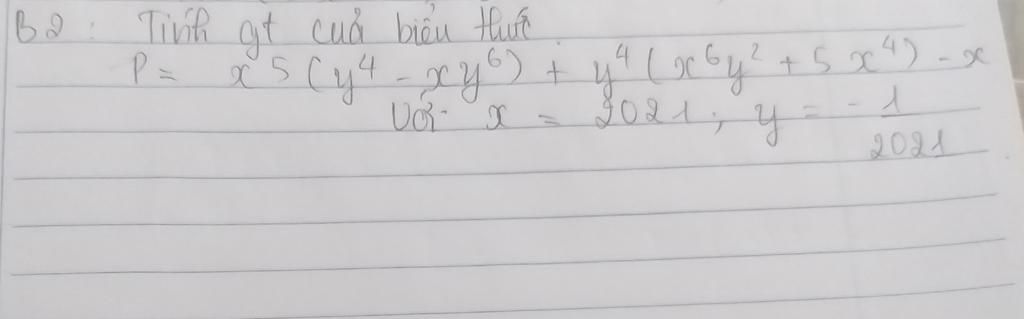 B2: Tính gt cuả biểu thức
P = x⁵(y⁴ - xy⁶) + y⁴(x⁶y² + 5x⁴) - x
Với x = 2021; y = -1/2021